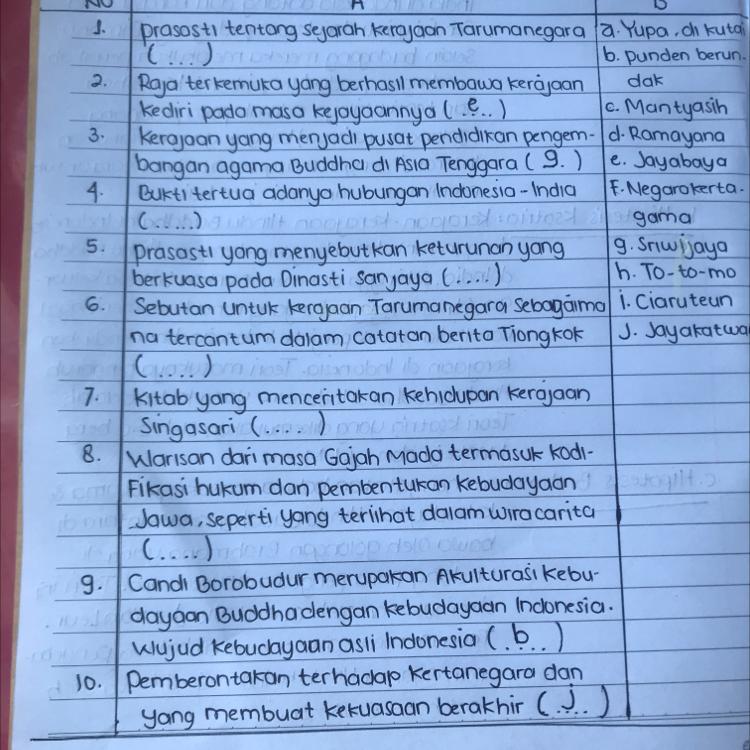 NO A B
1. prasasti tentang sejarah kerajaan Tarumanegara
(....)
2. Raja terkemuka yang berhasil membawa kerajaan
kediri pada masa kejayaannya (.e..)
3. kerajaan yang menjadi pusat pendidikan pengem-
bangan agama Buddha di Asia Tenggara ( g. )
4. Bukti tertua adanya hubungan Indonesia - India
(.....)
5. prasasti yang menyebutkan keturunan yang
berkuasa pada Dinasti Sanjaya (....)
6. Sebutan untuk kerajaan Tarumanegara Sebagaima
na tercantum dalam catatan berita Tiongkok
(....)
7. kitab yang menceritakan kehidupan kerajaan
Singasari (....)
8. Warisan dari masa Gajah Mada termasuk kodi-
Fikasi hukum dan pembentukan kebudayaan
Jawa, seperti yang terlihat dalam wiracarita
(....)
9. Candi Borobudur merupakan Akulturasi kebu-
dayaan Buddha dengan kebudayaan Indonesia.
Wujud kebudayaan asli Indonesia (.b..)
10. Pemberontakan terhadap kertanegara dan
yang membuat kekuasaan berakhir (.j..)
a. Yupa, di kutai
b. punden berun-
dak
c. Mantyasih
d. Ramayana
e. Jayabaya
F. Negarakerta-
gama
g. Sriwijaya
h. To-to-mo
i. Ciaruteun
J. Jayakatwa